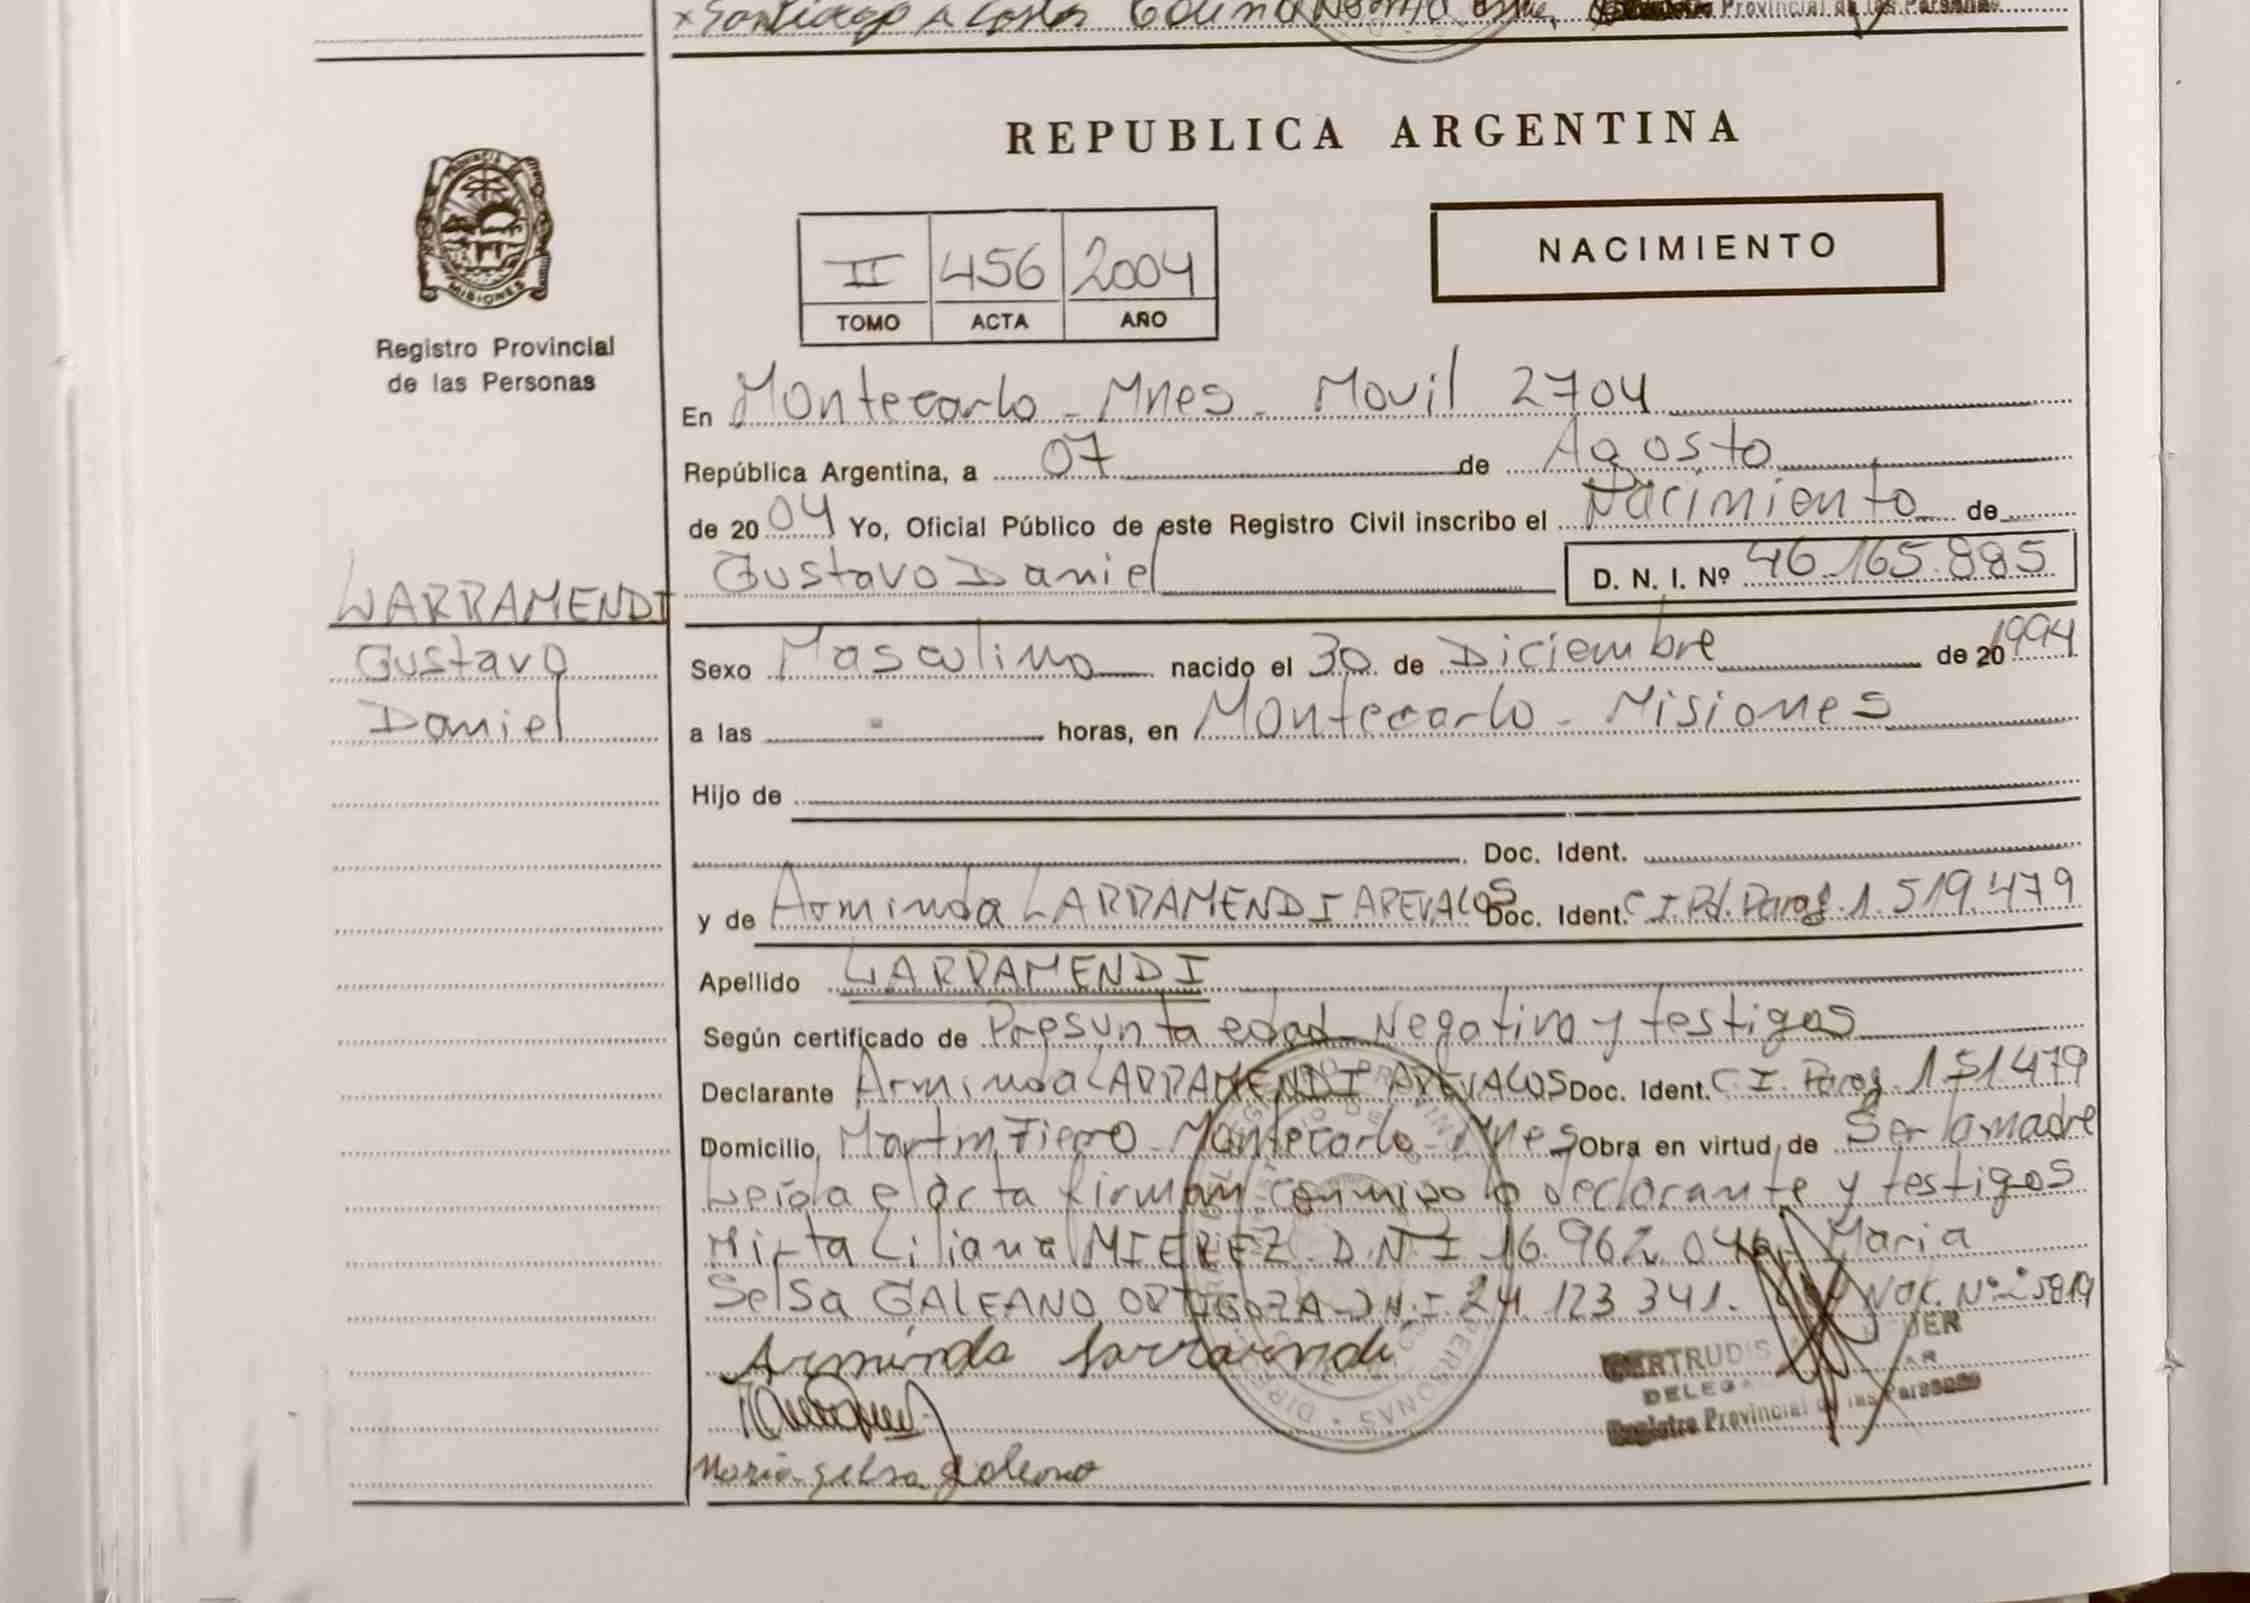 Santiago Acosta
Provincial de las Personas
REPUBLICA ARGENTINA
PROVINCIA DE MISIONES
Registro Provincial
de las Personas
II 456 2004
TOMO ACTA AÑO
NACIMIENTO
En Montecarlo - Mnes - Movil 2704
República Argentina, a 07 de Agosto
de 2004 Yo, Oficial Público de este Registro Civil inscribo el Nacimiento de
Gustavo Daniel D. N. I. Nº 46.165.885
LARRAMENDI
Gustavo
Daniel
Sexo Masculino nacido el 30 de Diciembre de 20 1994
a las - horas, en Montecarlo - Misiones
Hijo de
Doc. Ident.
y de Arminda LARRAMENDI AREVALOS Doc. Ident. C I. Pol. Parag. 1.519.479
Apellido LARRAMENDI
Según certificado de Presunta edad Negativo y testigos
Declarante Arminda LARRAMENDI AREVALOS Doc. Ident. C I. Parag. 151479
Domicilio, Martin Fierro - Montecarlo - Mnes Obra en virtud de Ser la madre
Leída el acta firman conmigo la declarante y testigos
Mirta Liliana MIEREZ D.N.I 16.962.046 Maria
Selsa GALEANO ORTIGOZA - D.N.I 24.123.341. Nac. Nº 25819
Arminda Larramendi
GERTRUDIS
DELEGA
Registro Provincial de las Personas
Maria Selsa Galeano